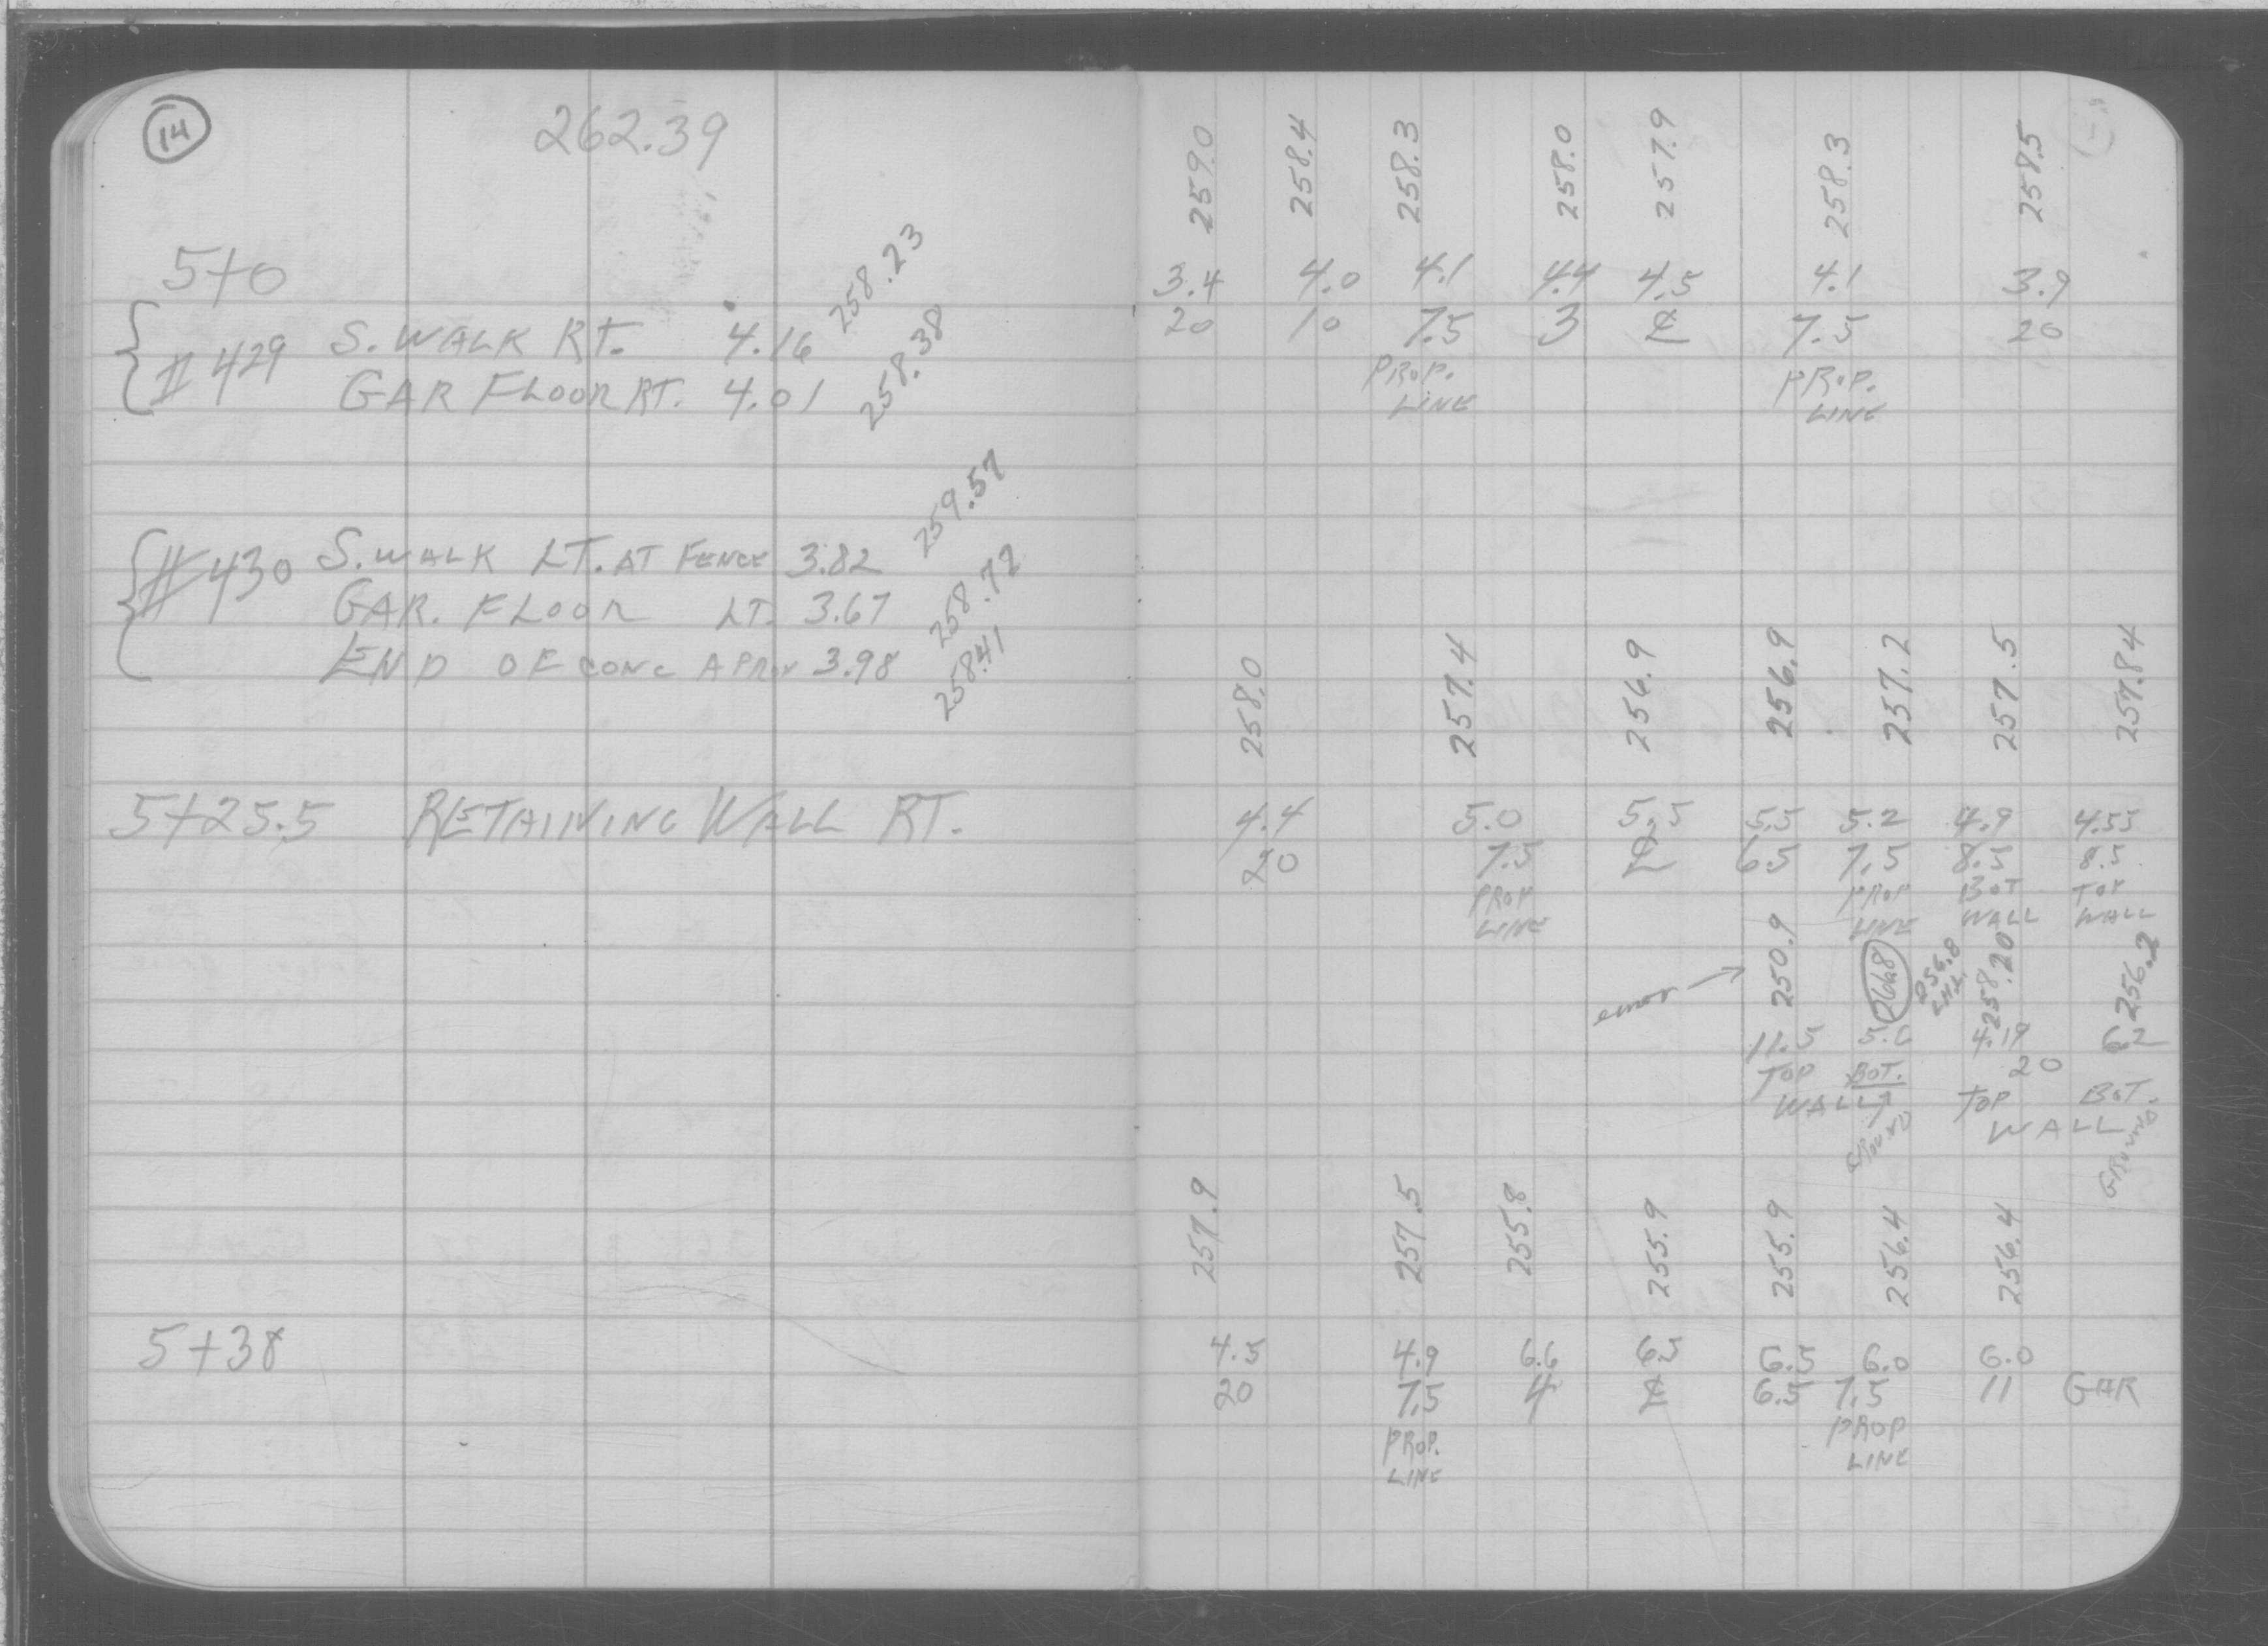 14
262.39
5+0
#429 S. WALK RT. 4.16 258.23
GAR FLOOR RT. 4.01 258.38
#430 S. WALK LT. AT FENCE 3.82 259.57
GAR. FLOOR LT. 3.67 258.72
END OF CONC APRON 3.98 258.41
5+25.5 RETAINING WALL RT.
5+38
259.0 258.4 258.3 258.0 257.9 258.3 258.5
3.4 4.0 4.1 4.4 4.5 4.1 3.9
20 10 7.5 3 ℄ 7.5 20
PROP. PROP.
LINE LINE
258.0 257.4 256.9 256.9 257.2 257.5 257.84
4.4 5.0 5.5 5.5 5.2 4.9 4.55
20 7.5 ℄ 6.5 7.5 8.5 8.5
PROP PROP BOT TOP
LINE LINE WALL WALL
error → 250.9 256.8 258.20 256.2
11.5 5.6 4.19 6.2
TOP BOT. 20
WALL TOP BOT.
GROUND WALL
GROUND
257.9 257.5 255.8 255.9 255.9 256.4 256.4
4.5 4.9 6.6 6.5 6.5 6.0 6.0
20 7.5 4 ℄ 6.5 7.5 11 GAR
PROP. PROP
LINE LINE